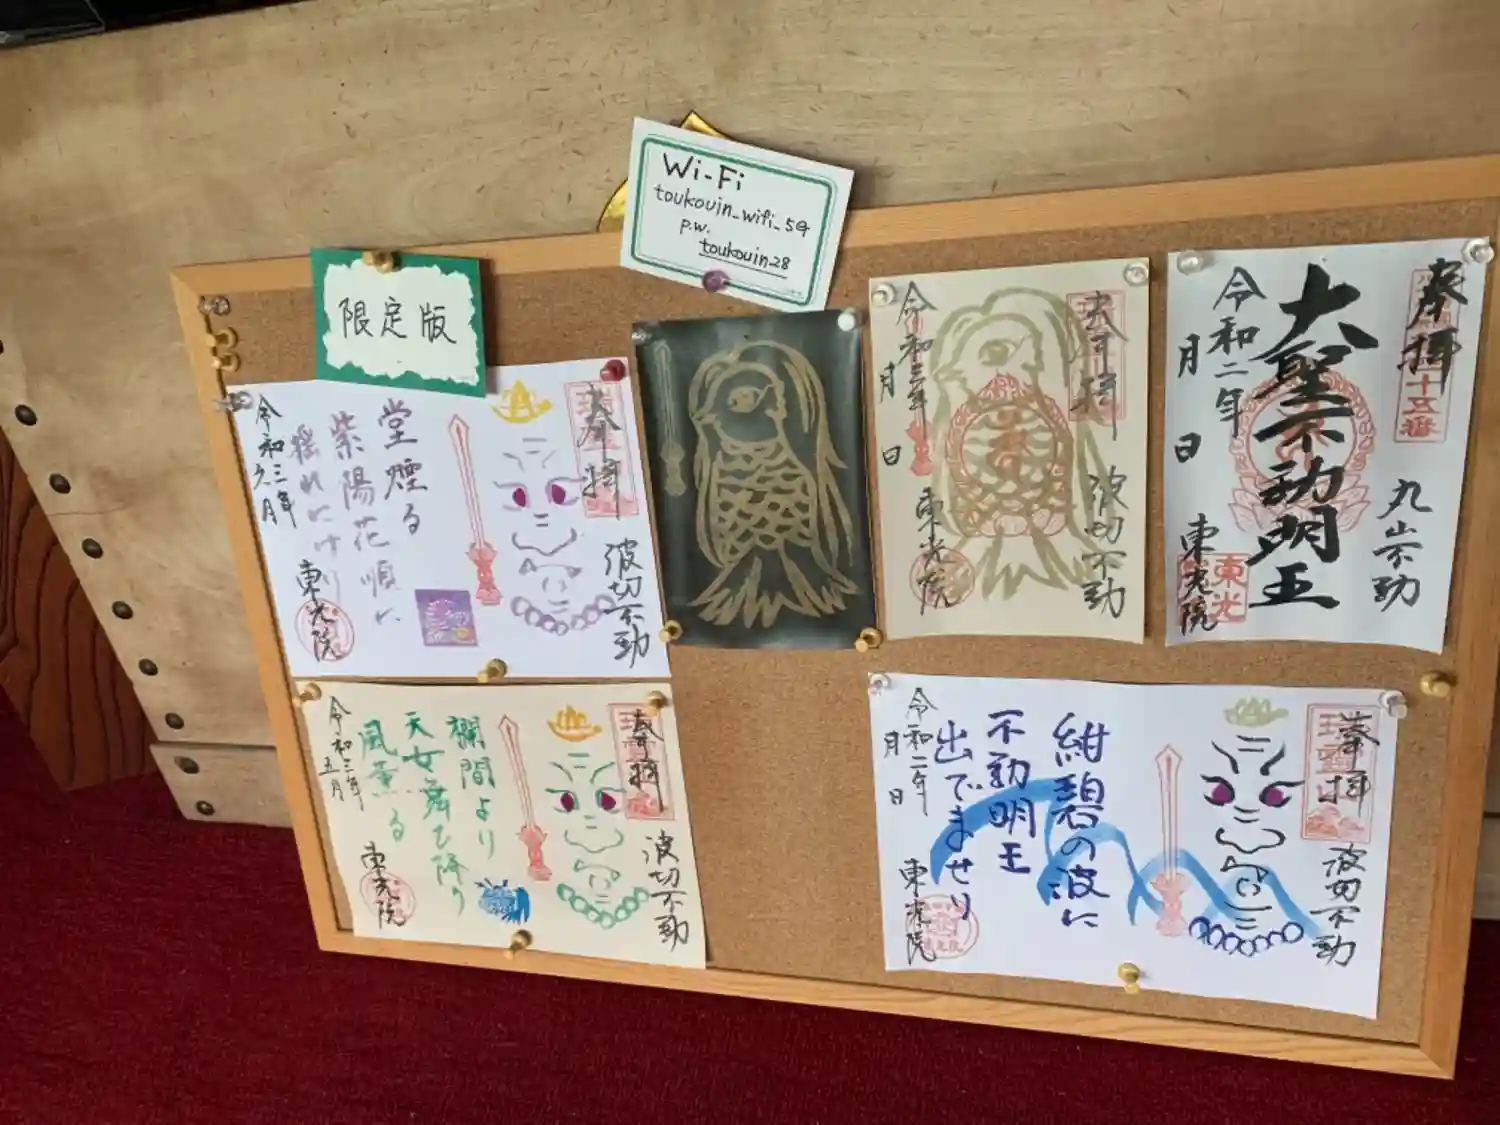 Wi-Fi
toukouin_wifi_5G
p.w.
toukouin28
限定版
奉拝
波切不動
堂煙る
紫陽花順に
揺れにけり
令和三年
六月
東光院
奉拝
波切不動
令和三年
月
日
東光院
奉拝
十五番
丸山不動
大聖不動明王
令和二年
月
日
東光院
東光
奉拝
波切不動
欄間より
天女舞ひ降り
風薫る
令和三年
五月
東光院
奉拝
波切不動
紺碧の波に
不動明王
出でませり
令和二年
月
日
東光院